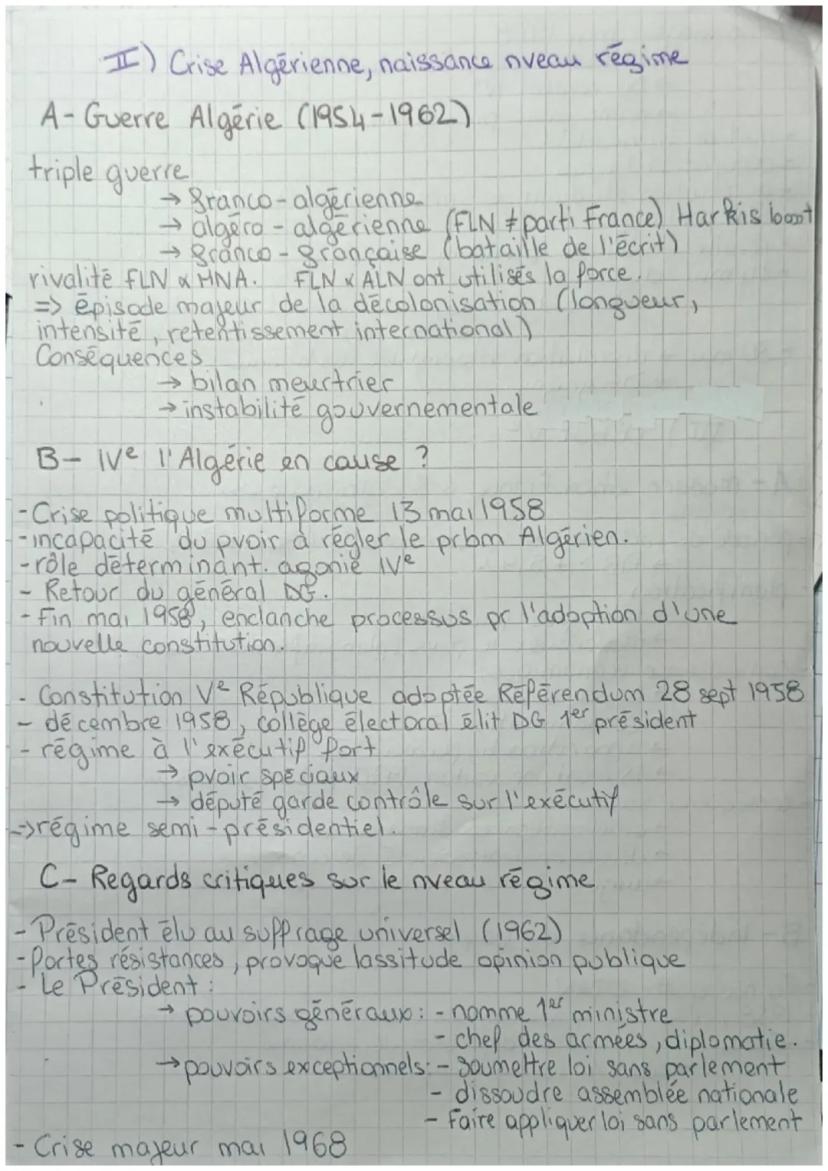 II) Crise Algérienne, naissance nveau régime
A- Guerre Algérie (1954-1962)
triple guerre
→ franco-algérienne
→ algéro-algérienne (FLN ≠ parti France) Harkis
→ franco-française (bataille de l'écrit)
rivalité FLN & MNA. FLN & ALN ont utilisés la force.
=> épisode majeur de la décolonisation (longueur,
intensité, retentissement international)
Conséquences
→ bilan meurtrier
→ instabilité gouvernementale
B- IVe l'Algérie en cause ?
- Crise politique multiforme 13 mai 1958
- incapacité du pvoir à régler le prbm Algérien.
- rôle déterminant. agonie IVe
- Retour du général DG.
- Fin mai 1958, enclanche processus pr l'adoption d'une
nouvelle constitution.
- Constitution Ve République adoptée Référendum 28 sept 1958
- décembre 1958, collège électoral élit DG 1er président
- régime à l'exécutif fort
→ pvoir spéciaux
→ député garde contrôle sur l'exécutif
->régime semi-présidentiel.
C- Regards critiques sur le nveau régime
- Président élu au suffrage universel (1962)
- Fortes résistances, provoque lassitude opinion publique
- Le Président :
→ pouvoirs généraux : - nomme 1er ministre
- chef des armées, diplomatie.
→ pouvoirs exceptionnels : - soumettre loi sans parlement
- dissoudre assemblée nationale
- Faire appliquer loi sans parlement
- Crise majeur mai 1968